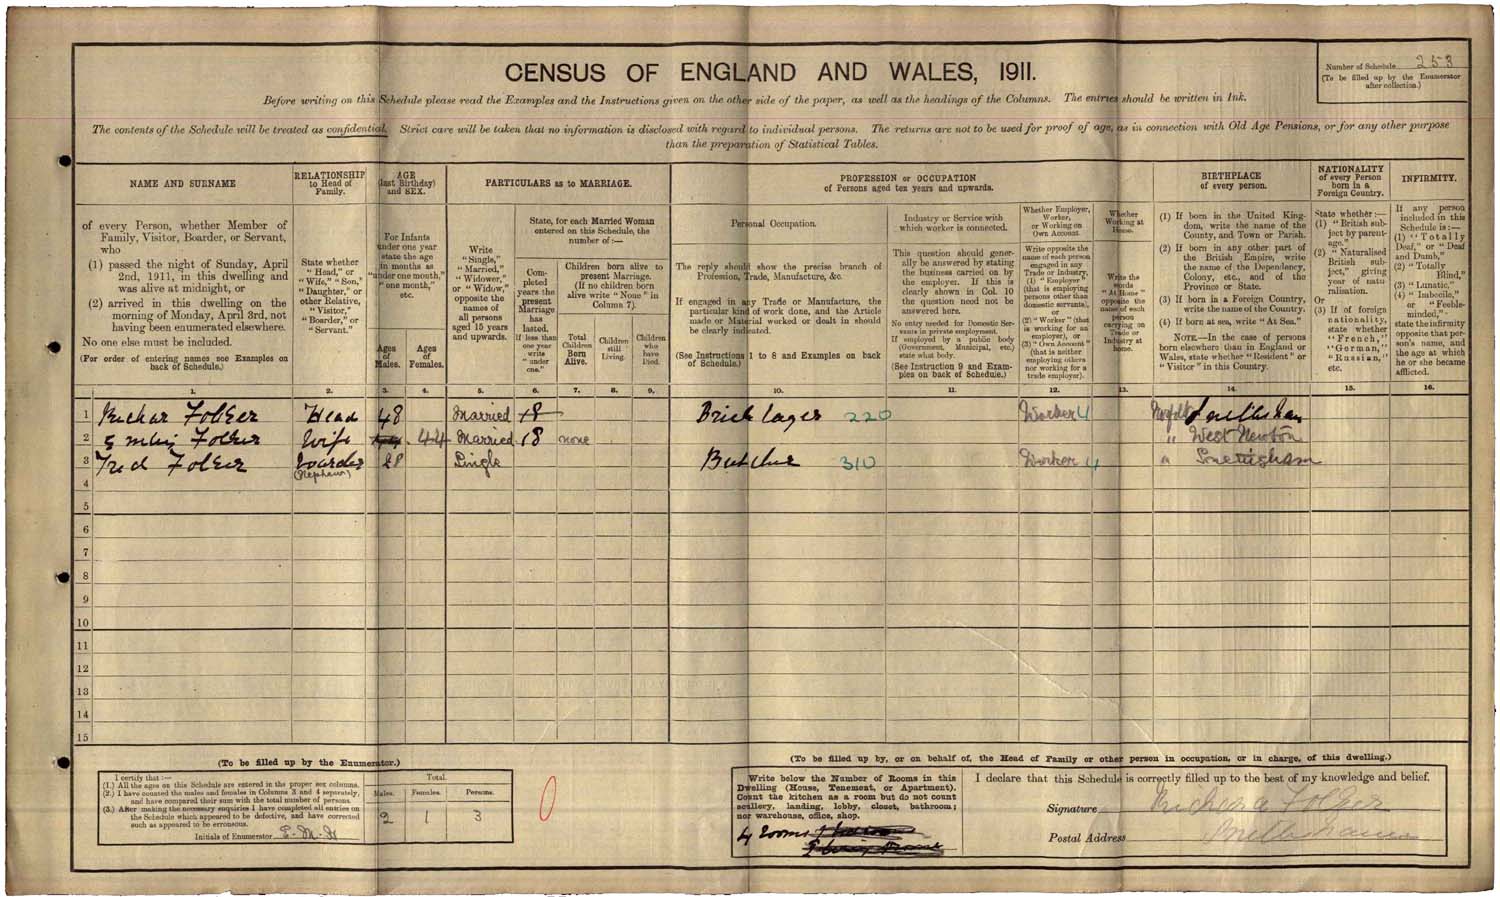 CENSUS OF ENGLAND AND WALES, 1911.
Number of Schedule 253
(To be filled up by the Enumerator
after collection.)
Before writing on this Schedule please read the Examples and the Instructions given on the other side of the paper, as well as the headings of the Columns. The entries should be written in Ink.
The contents of the Schedule will be treated as confidential. Strict care will be taken that no information is disclosed with regard to individual persons. The returns are not to be used for proof of age, as in connection with Old Age Pensions, or for any other purpose
than the preparation of Statistical Tables.
NAME AND SURNAME
of every Person, whether Member of
Family, Visitor, Boarder, or Servant,
who
(1) passed the night of Sunday, April
2nd, 1911, in this dwelling and
was alive at midnight, or
(2) arrived in this dwelling on the
morning of Monday, April 3rd, not
having been enumerated elsewhere.
No one else must be included.
(For order of entering names see Examples on
back of Schedule.)
1.
RELATIONSHIP
to Head of
Family.
State whether
"Head," or
"Wife," "Son,"
"Daughter," or
other Relative,
"Visitor,"
"Boarder," or
"Servant."
2.
AGE
(last Birthday)
and SEX.
For Infants
under one year
state the age
in months as
"under one month,"
"one month,"
etc.
Ages
of
Males.
3.
Ages
of
Females.
4.
PARTICULARS as to MARRIAGE.
Write
"Single,"
"Married,"
"Widower,"
or "Widow,"
opposite the
names of
all persons
aged 15 years
and upwards.
5.
State, for each Married Woman
entered on this Schedule, the
number of:—
Com-
pleted
years the
present
Marriage
has
lasted.
If less than
one year
write
"under
one."
6.
Children born alive to
present Marriage.
(If no children born
alive write "None" in
Column 7).
Total
Children
Born
Alive.
7.
Children
still
Living.
8.
Children
who
have
Died.
9.
PROFESSION or OCCUPATION
of Persons aged ten years and upwards.
Personal Occupation.
The reply should show the precise branch of
Profession, Trade, Manufacture, &c.
If engaged in any Trade or Manufacture, the
particular kind of work done, and the Article
made or Material worked or dealt in should
be clearly indicated.
(See Instructions 1 to 8 and Examples on back
of Schedule.)
10.
Industry or Service with
which worker is connected.
This question should gener-
ally be answered by stating
the business carried on by
the employer. If this is
clearly shown in Col. 10
the question need not be
answered here.
No entry needed for Domestic Ser-
vants in private employment.
If employed by a public body
(Government, Municipal, etc.)
state what body.
(See Instruction 9 and Exam-
ples on back of Schedule.)
11.
Whether Employer,
Worker,
or Working on
Own Account.
Write opposite the
name of each person
engaged in any
Trade or Industry,
(1) "Employer"
(that is employing
persons other than
domestic servants),
or
(2) "Worker" (that
is working for an
employer), or
(3) "Own Account"
(that is neither
employing others
nor working for a
trade employer).
12.
Whether
Working at
Home.
Write the
words
"At Home"
opposite the
name of each
person
carrying on
Trade or
Industry at
home.
13.
BIRTHPLACE
of every person.
(1) If born in the United King-
dom, write the name of the
County, and Town or Parish.
(2) If born in any other part of
the British Empire, write
the name of the Dependency,
Colony, etc., and of the
Province or State.
(3) If born in a Foreign Country,
write the name of the Country.
(4) If born at sea, write "At Sea."
NOTE.—In the case of persons
born elsewhere than in England or
Wales, state whether "Resident" or
"Visitor" in this Country.
14.
NATIONALITY
of every Person
born in a
Foreign Country.
State whether:—
(1) "British sub-
ject by parent-
age."
(2) "Naturalised
British sub-
ject," giving
year of natu-
ralisation.
Or
(3) If of foreign
nationality,
state whether
"French,"
"German,"
"Russian,"
etc.
15.
INFIRMITY.
If any person
included in this
Schedule is:—
(1) "Totally
Deaf," or "Deaf
and Dumb,"
(2) "Totally
Blind,"
(3) "Lunatic,"
(4) "Imbecile,"
or "Feeble-
minded,"
state the infirmity
opposite that per-
son's name, and
the age at which
he or she became
afflicted.
16.
1 Folker Head 48 Married 18 Brick layer 220 Worker 4 Norfolk
2 Folker Wife 44 Married 18 none " West Newton
3 Fred Folker Boarder 28 Single Butcher 310 Worker 4 "
(Nephew)
4
5
6
7
8
9
10
11
12
13
14
15
(To be filled up by the Enumerator.)
I certify that:—
(1.) All the ages on this Schedule are entered in the proper sex columns.
(2.) I have counted the males and females in Columns 3 and 4 separately,
and have compared their sum with the total number of persons.
(3.) After making the necessary enquiries I have completed all entries on
the Schedule which appeared to be defective, and have corrected
such as appeared to be erroneous.
Initials of Enumerator
Total.
Males. Females. Persons.
2 1 3
0
(To be filled up by, or on behalf of, the Head of Family or other person in occupation, or in charge, of this dwelling.)
Write below the Number of Rooms in this
Dwelling (House, Tenement, or Apartment).
Count the kitchen as a room but do not count
scullery, landing, lobby, closet, bathroom;
nor warehouse, office, shop.
4 rooms
I declare that this Schedule is correctly filled up to the best of my knowledge and belief.
Signature Folker
Postal Address